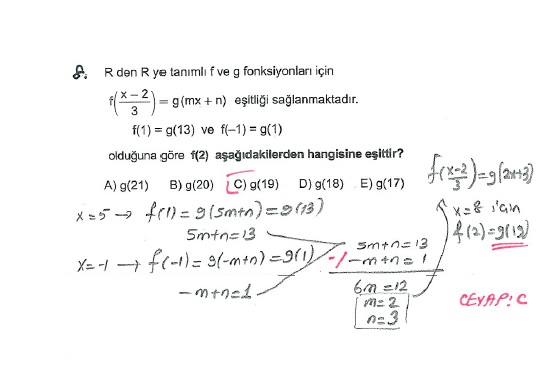 8. R den R ye tanımlı f ve g fonksiyonları için
f(x − 2 / 3) = g(mx + n) eşitliği sağlanmaktadır.
f(1) = g(13) ve f(−1) = g(1)
olduğuna göre f(2) aşağıdakilerden hangisine eşittir?
A) g(21) B) g(20) C) g(19) D) g(18) E) g(17)
x = 5 → f(1) = g(5m+n) = g(13)
5m+n = 13
x = -1 → f(-1) = g(-m+n) = g(1)
-m+n = 1
5m+n = 13
-/ -m+n = 1
6m = 12
m = 2
n = 3
f(x-2 / 3) = g(2x+3)
x = 8 için
f(2) = g(19)
CEVAP: C